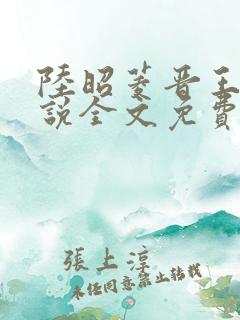 陸昭菱晋王
說全文免費
張上淳
未經同意禁止轉載